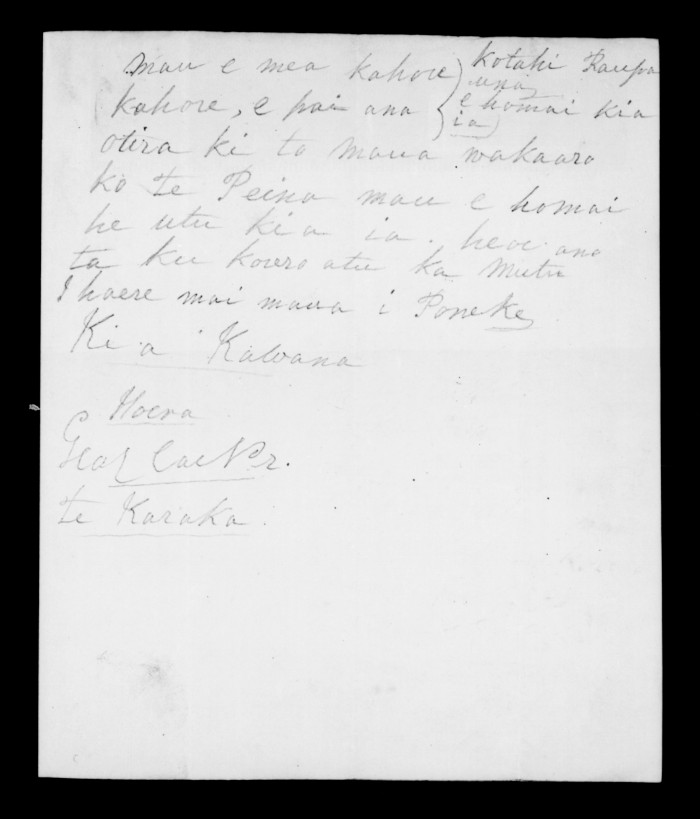 mau e mea kahore
kahore, e pai ana
kotahi Raupa
una
e homai kia
ia
otira ki ta maua wakaaro
ko te Peina mau e homai
he utu ki a ia. heoi ano
ta ku korero atu ka mutu
I haere mai maua i Poneke
Ki a Kawana
Hoera
te Karaka.